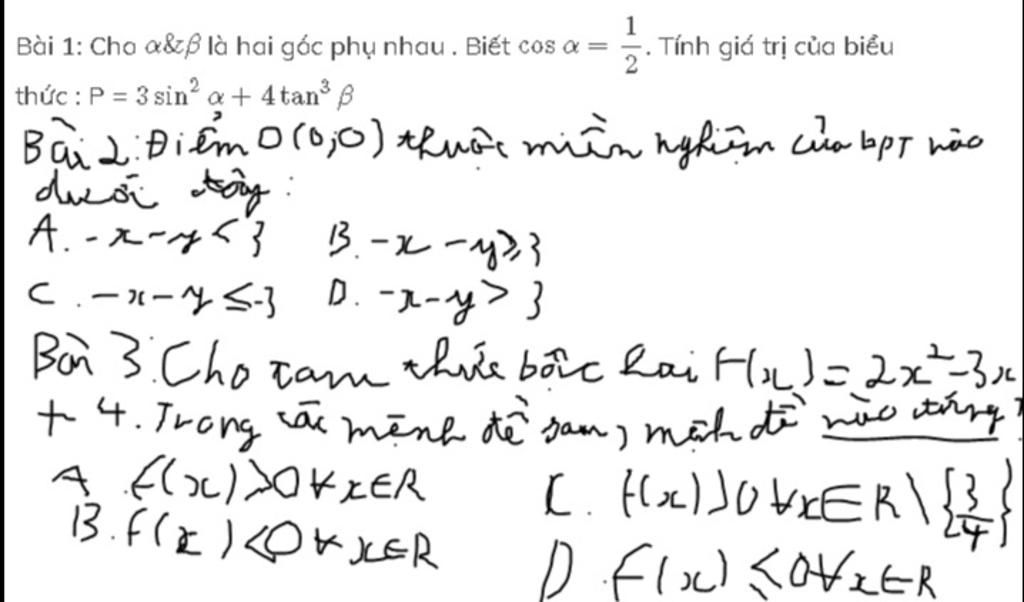 Bài 1: Cho α&β là hai góc phụ nhau . Biết cos α = 1/2. Tính giá trị của biểu
thức : P = 3 sin² α + 4 tan³ β
Bài 2: Điểm O(0;0) thuộc miền nghiệm của bpT nào
dưới đây :
A. -x-y < 3 B. -x-y ≥ 3
C. -x-y ≤ -3 D. -x-y > 3
Bài 3: Cho tam thức bậc hai f(x) = 2x² - 3x
+ 4. Trong các mệnh đề sau, mệnh đề nào đúng?
A. f(x) > 0 ∀ x ∈ R C. f(x) > 0 ∀ x ∈ R \ {3/4}
B. f(x) < 0 ∀ x ∈ R D. f(x) ≤ 0 ∀ x ∈ R